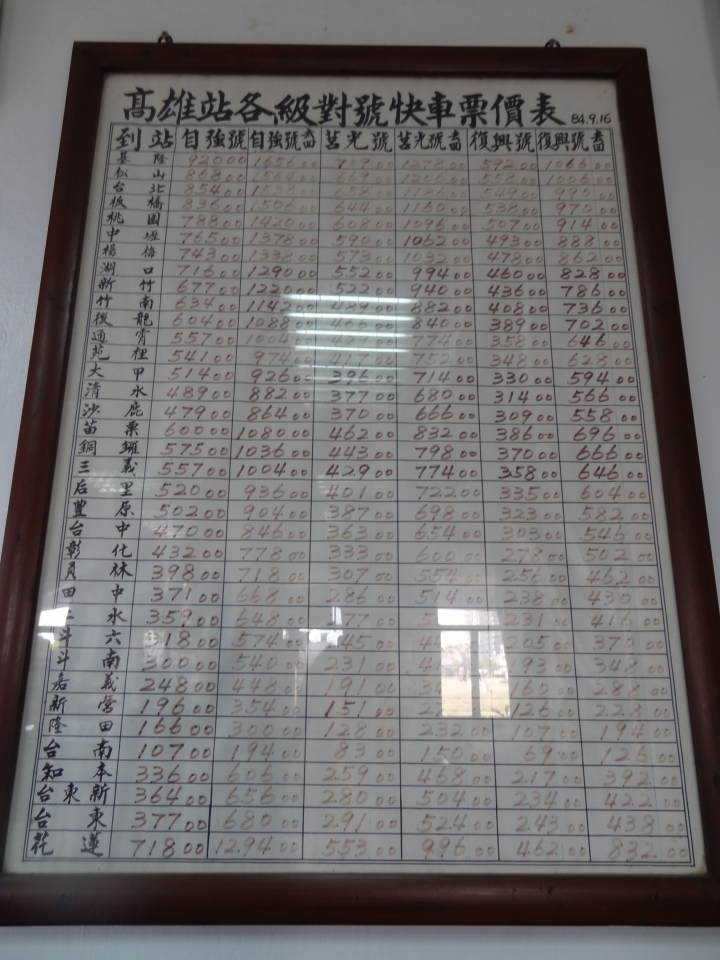 高雄站各級對號快車票價表 84.9.16
到站 自強號 自強號去回 莒光號 莒光號去回 復興號 復興號去回
基隆 92000 165600 70900 127800 59200 106600
松山 86800 156400 66900 120600 55800 100600
台北 85400 153800 65800 118600 54900 99000
板橋 83600 150600 64400 116000 53800 97000
桃園 78800 142000 60800 109600 50700 91400
中壢 76500 137800 59000 106200 49300 88800
楊梅 74300 133800 57300 103200 47800 86200
湖口 71600 129000 55200 99400 46000 82800
新竹 67700 122000 52200 94000 43600 78600
竹南 63400 114200 48900 88200 40800 73600
後龍 60400 108800 46600 84000 38900 70200
通霄 55700 100400 42900 77400 35800 64600
苑裡 54100 97400 41700 75200 34800 62800
大甲 51400 92600 39600 71400 33000 59400
清水 48900 88200 37700 68000 31400 56600
沙鹿 47900 86400 37000 66600 30900 55800
苗栗 60000 108000 46200 83200 38600 69600
銅鑼 57500 103600 44300 79800 37000 66600
三義 55700 100400 42900 77400 35800 64600
后里 52000 93600 40100 72200 33500 60400
豐原 50200 90400 38700 69800 32300 58200
台中 47000 84600 36300 65400 30300 54600
彰化 43200 77800 33300 60000 27800 50200
員林 39800 71800 30700 55400 25600 46200
田中 37100 66800 28600 51400 23800 43000
二水 35900 64800 27700 23100 41600
斗六 31800 57400 24500 20500 37000
斗南 30000 54000 23100 19300 34800
嘉義 24800 44800 19100 16000 28800
新營 19600 35400 15100 12600 22800
隆田 16600 30000 12800 23200 10700 19400
台南 10700 19400 8300 15000 6900 12600
知本 33600 60600 25900 46800 21700 39200
台東新 36400 65600 28000 50400 23400 42200
台東 37700 68000 29100 52400 24300 43800
花蓮 71800 129400 55300 99600 46200 83200